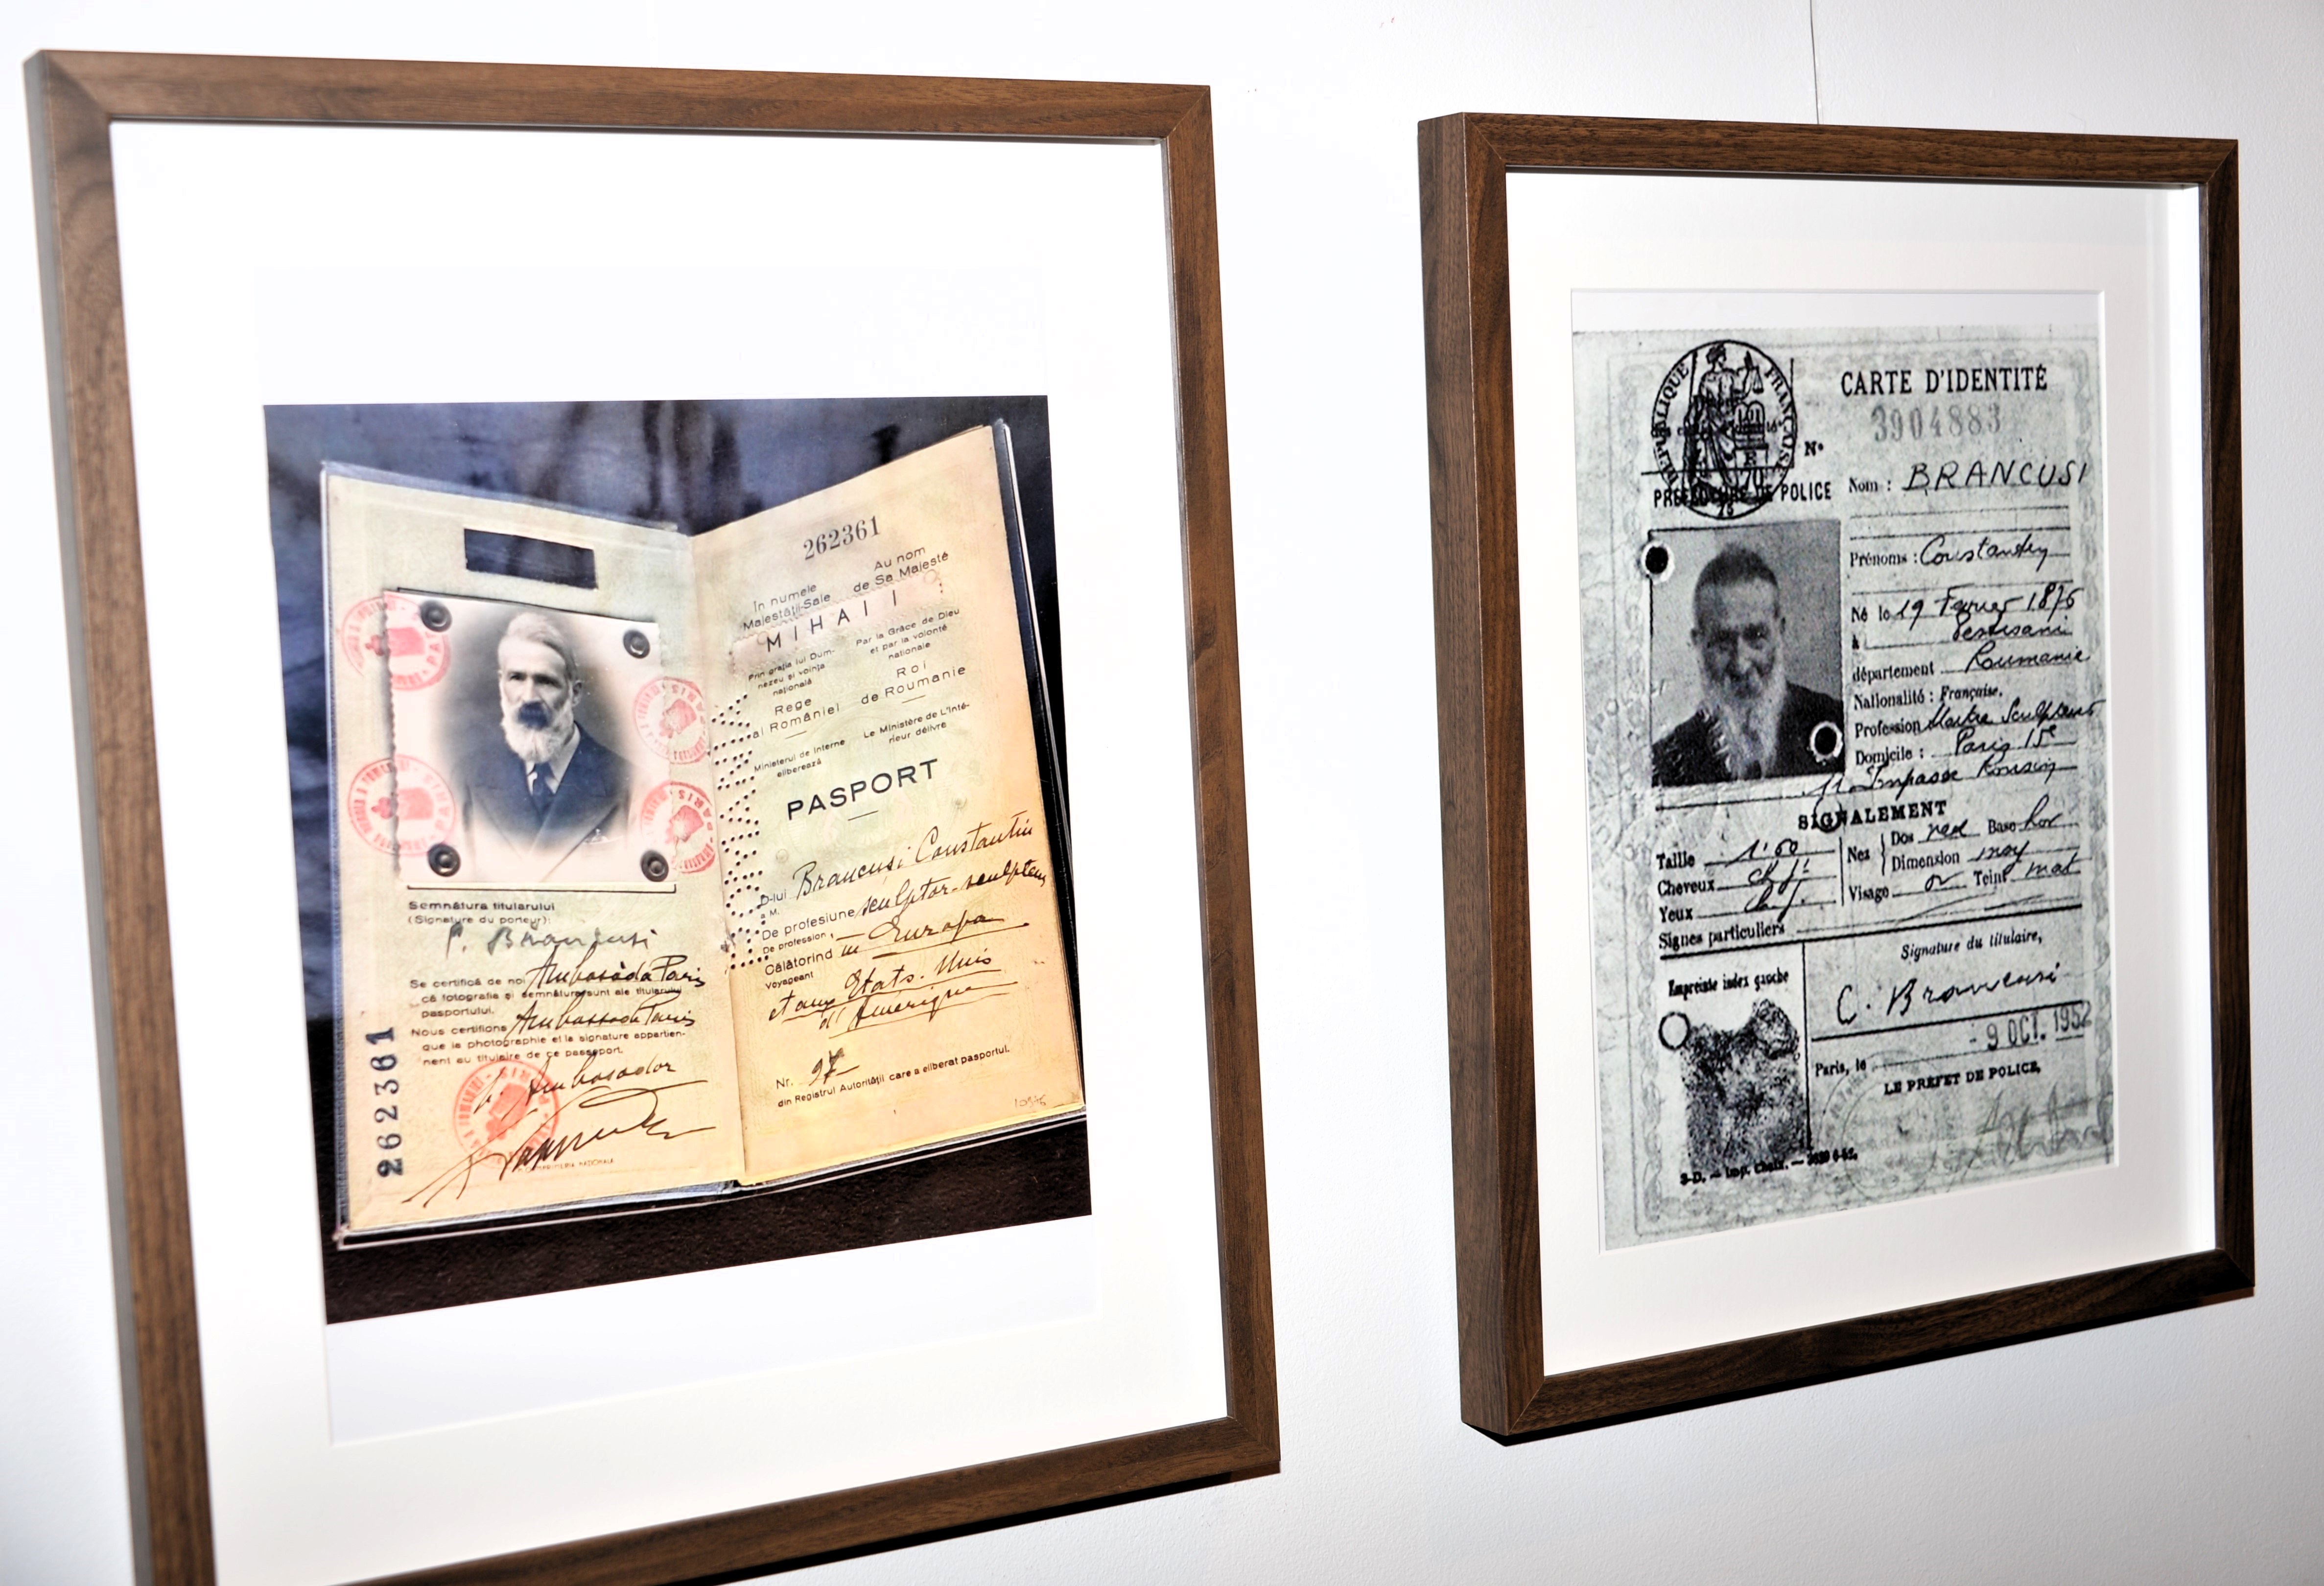 Semnătura titularului
(Signature du porteur):
C. Brancusi
Se certifică de noi Ambasada Paris
că fotografia și semnătura sunt ale titularului
pasportului.
Nous certifions Ambassade Paris
que la photographie et la signature appartien-
nent au titulaire de ce passeport.
Ambasador
262361
262361
În numele
Majestății-Sale
Au nom
de Sa Majesté
MIHAI I
Prin grația lui Dum-
nezeu și voința
națională
Par la Grâce de Dieu
et par la volonté
nationale
Rege
al României
Roi
de Roumanie
Ministerul de Interne
eliberează
Le Ministère de L'Inté-
rieur délivre
PASPORT
D-lui Brancusi Constantin
a M.
De profesiune sculptor-sculpteur
De profession
Călătorind în Europa
Voyageant
et aux Etats-Unis
d'Amerique
Nr. 97
din Registrul Autorității care a eliberat pasportul.
RÉPUBLIQUE FRANÇAISE
CARTE D'IDENTITÉ
Nº 3904883
PREFECTURE DE POLICE
Nom : BRANCUSI
Prénoms : Constantin
Né le 19 Fevrier 1876
à Pestisani
département Roumanie
Nationalité : Française.
Profession Maitre Sculpteur
Domicile : Paris 15e
11 Impasse Ronsin
SIGNALEMENT
Taille 1.60
Cheveux
Yeux
Signes particuliers
Nez
Dos
Base
Dimension moy
Visage ov Teint mat
Empreinte index gauche
Signature du titulaire,
C. Brancusi
Paris, le - 9 OCT. 1952
LE PRÉFET DE POLICE,